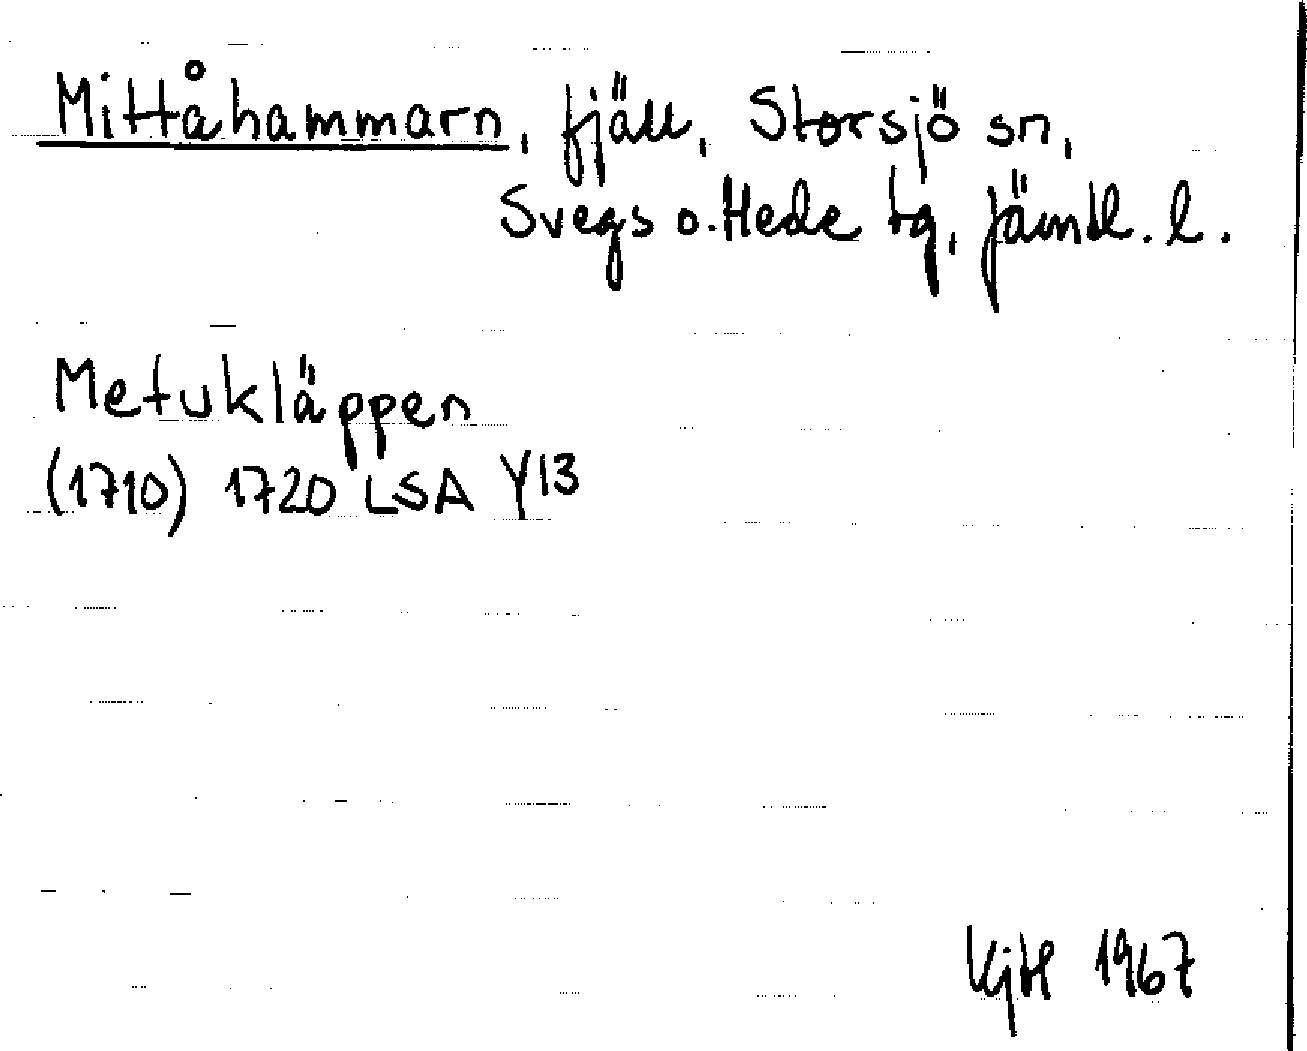 Mittåhammarn, fjäll, Storsjö sn,
Svegs o. Hede tg, Jämtl. l.
Metukläppen
(1710) 1720 LSA Y13
1967